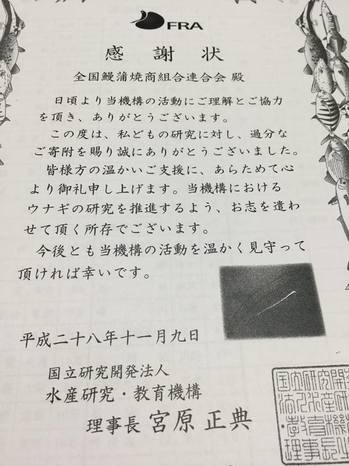 FRA
感謝状
全国鰻蒲焼商組合連合会 殿
日頃より当機構の活動にご理解とご協力
を頂き、ありがとうございます。
この度は、私どもの研究に対し、過分な
ご寄附を賜り誠にありがとうございました。
皆様方の温かいご支援に、あらためて心
より御礼申し上げます。当機構における
ウナギの研究を推進するよう、お志を遣わ
せて頂く所存でございます。
今後とも当機構の活動を温かく見守って
頂ければ幸いです。
平成二十八年十一月九日
国立研究開発法人
水産研究・教育機構
理事長 宮原 正典